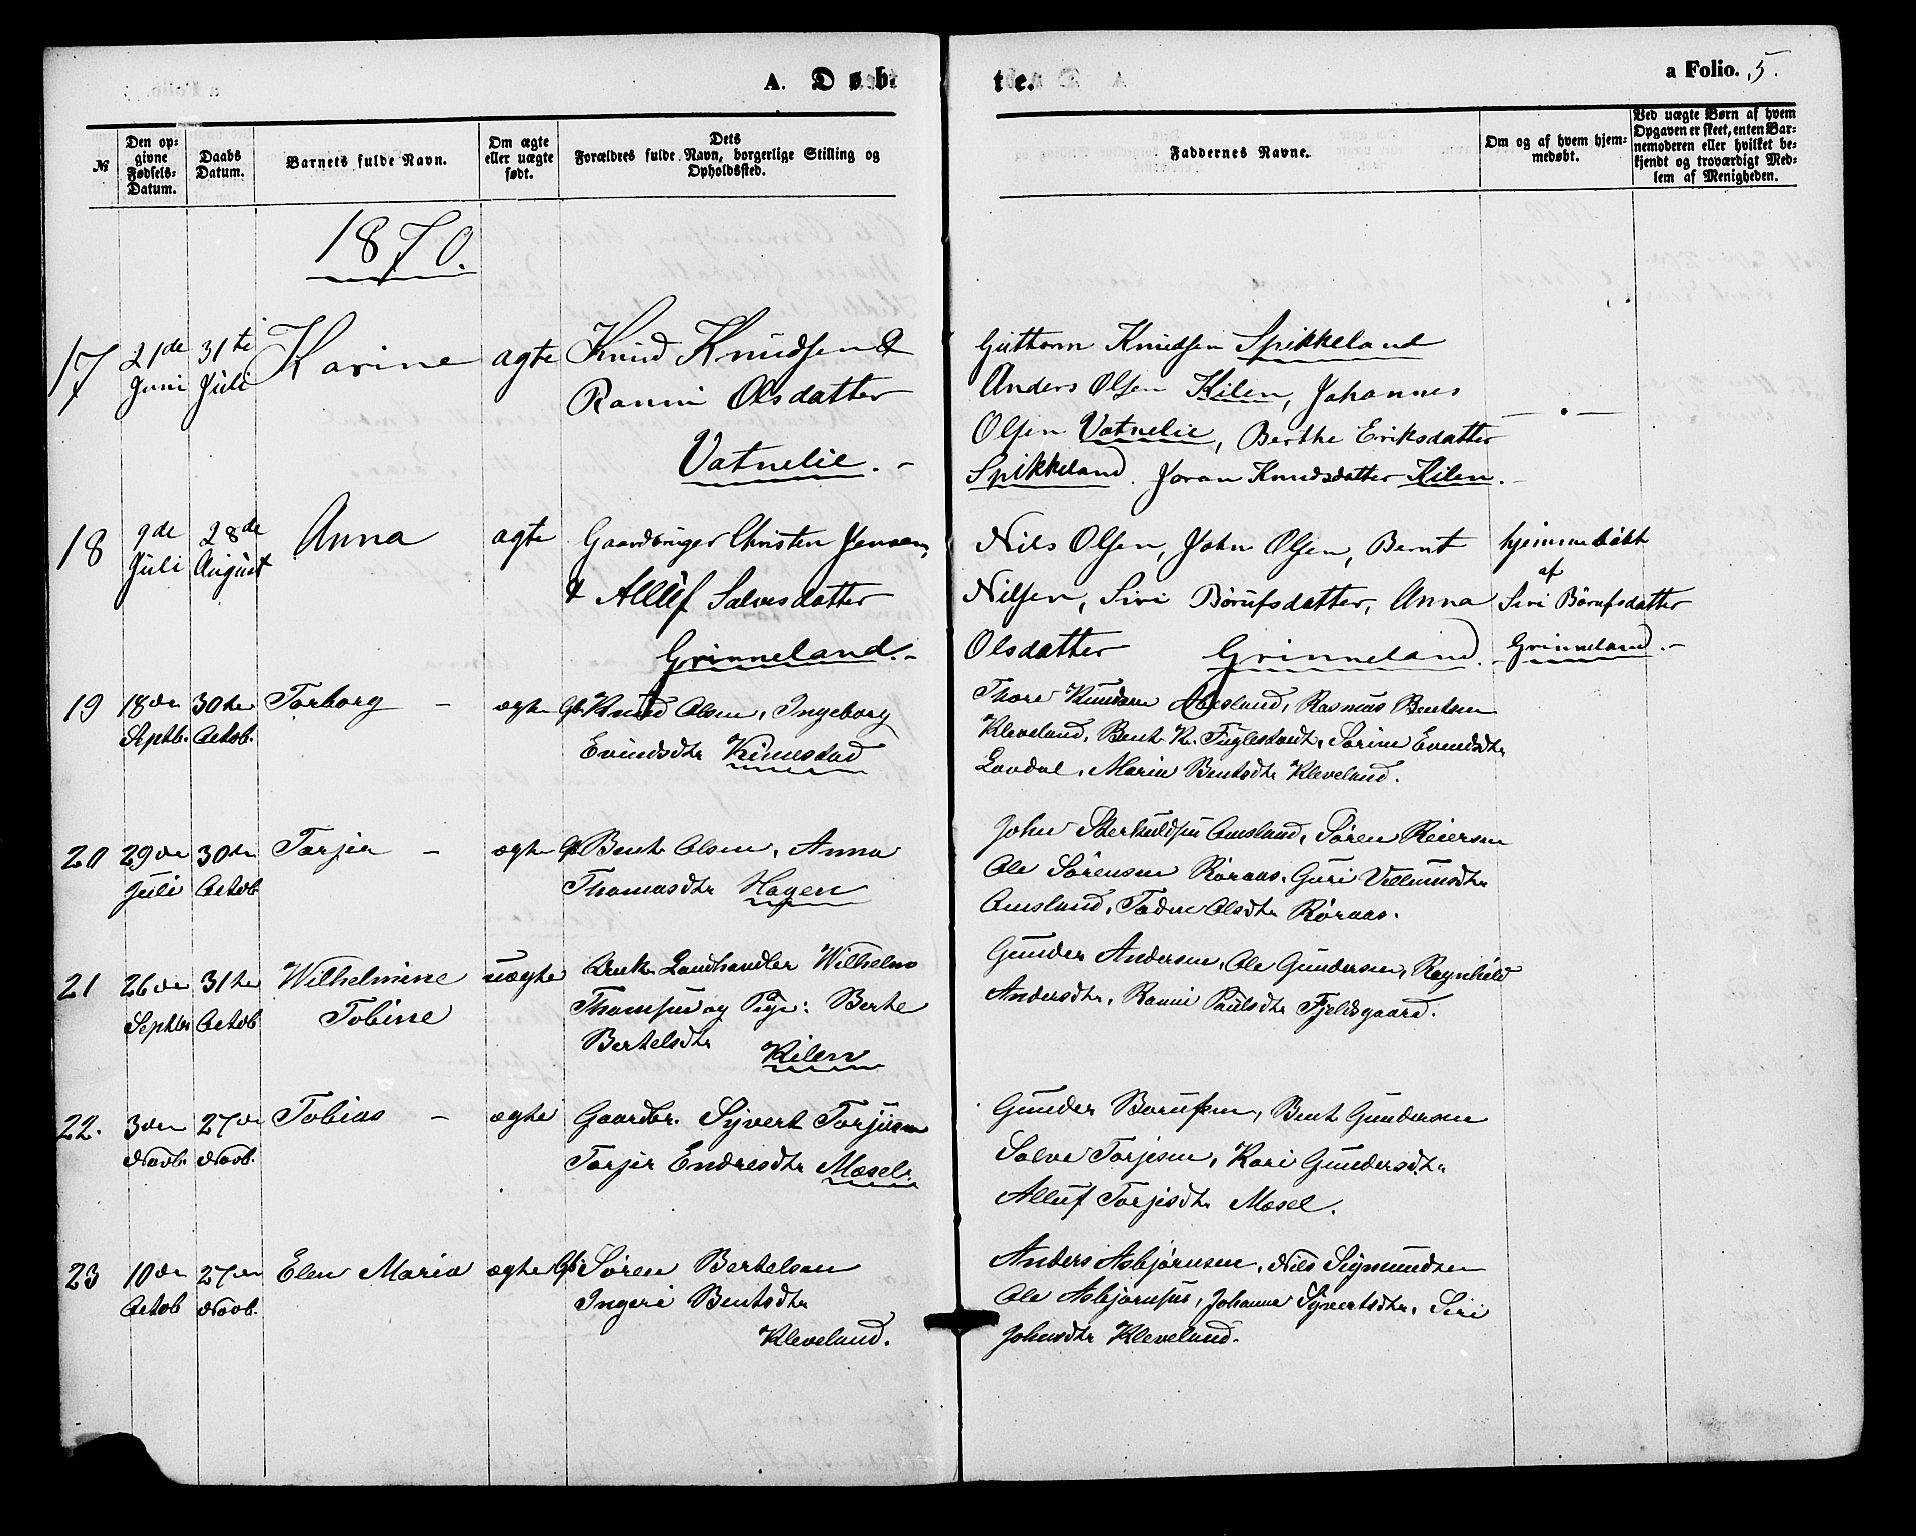 A. Døb
te.
a Folio. 5.
№
Den op-
givne
Fødsels-
Datum.
Daabs
Datum.
Barnets fulde Navn.
Om ægte
eller uægte
født.
Dets
Forældres fulde Navn, borgerlige Stilling og
Opholdssted.
Faddernes Navne.
Om og af hvem hjem-
medøbt.
Ved uægte Børn af hvem
Opgaven er skeet, enten Bar-
nemoderen eller hvilket be-
kjendt og troværdigt Med-
lem af Menigheden.
1870.
17 21de Juni 31te Juli Karine ægte
Knud Knudsen &
Ranni Olsdatter
Vatnelie. -
Guttorm Knudsen Spikkeland
Anders Olsen Kilen, Johannes
Olsen Vatnelie, Berthe Eriksdatter
Spikkeland. Joran Knudsdatter Kilen. -
— . —
18 9de Juli 28de August Anna ægte
Gaardbruger Christen Jensen,
& Alluf Salvesdatter
Grinneland. -
Nils Olsen, John Olsen, Bernt
Nilsen, Siri Børufsdatter, Anna
Olsdatter Grinneland. -
hjemmedøbt
af
Siri Børufsdatter
Grinneland. -
19 18de Septbr. 30te Octob. Torborg - ægte
Gb. Knud Olsen, Ingeborg
Evindsdtr Kinnestad
Thore Knudsen Aaesland, Rasmus Bentsen
Kleveland, Bent K. Fuglestvedt, Sørine Evindsdtr
Lovdal, Maria Bentsdtr Kleveland.
20 29de Juli 30te Octob. Torjer - ægte
Gb. Bent Olsen, Anna
Thomasdtr Hagen
John Amsland, Søren Reiersen
Ole Sørensen Røraas, Guri Villumsdtr
Amsland, Olsdtr Røraas.
21 26de Septbr 31te Octob. Wilhelmine
Tobine uægte
Enk. Landhandler Wilhelm
Thomsen og Pige: Berte
Bertelsdtr Kilen
Gunder Andersen, Ole Gundersen, Ragnhild
Andersdtr, Ranni Paulsdtr Fjeldsgaard.
22. 3den Novbr. 27de Novb. Tobias - ægte
Gaardbr. Syvert Torjusen
Torjer Endresdtr Mæsel.
Gunder Børufsen, Bent Gundersen
Salve Torjesen, Kari Gundersdtr
Alluf Torjisdtr Mæsel.
23 10de Octob 27de Novb. Elen Maria ægte
Gb. Søren Bertelsen
Ingeri Bentsdtr
Kleveland.
Anders Asbjørnsen, Nils Sigmundsen
Ole Asbjørnsen, Johanne Syvertsdtr, Siri
Johnsdtr Kleveland.